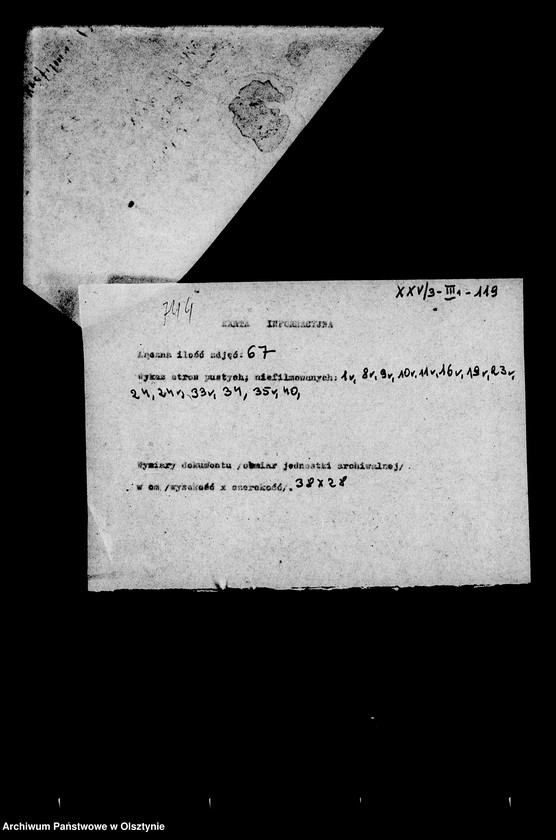 XXV/3-III1-119
744
KARTA INFORMACYJNA
Łączna ilość zdjęć: 67
Wykaz stron pustych, niefilmowanych: 1v, 8v, 9v, 10v, 11v, 16v, 19v, 23v,
24, 24v, 33v, 34, 35v, 40,
Wymiary dokumentu /obmiar jednostki archiwalnej/
w cm /wysokość x szerokość/. 38x28
Archiwum Państwowe w Olsztynie